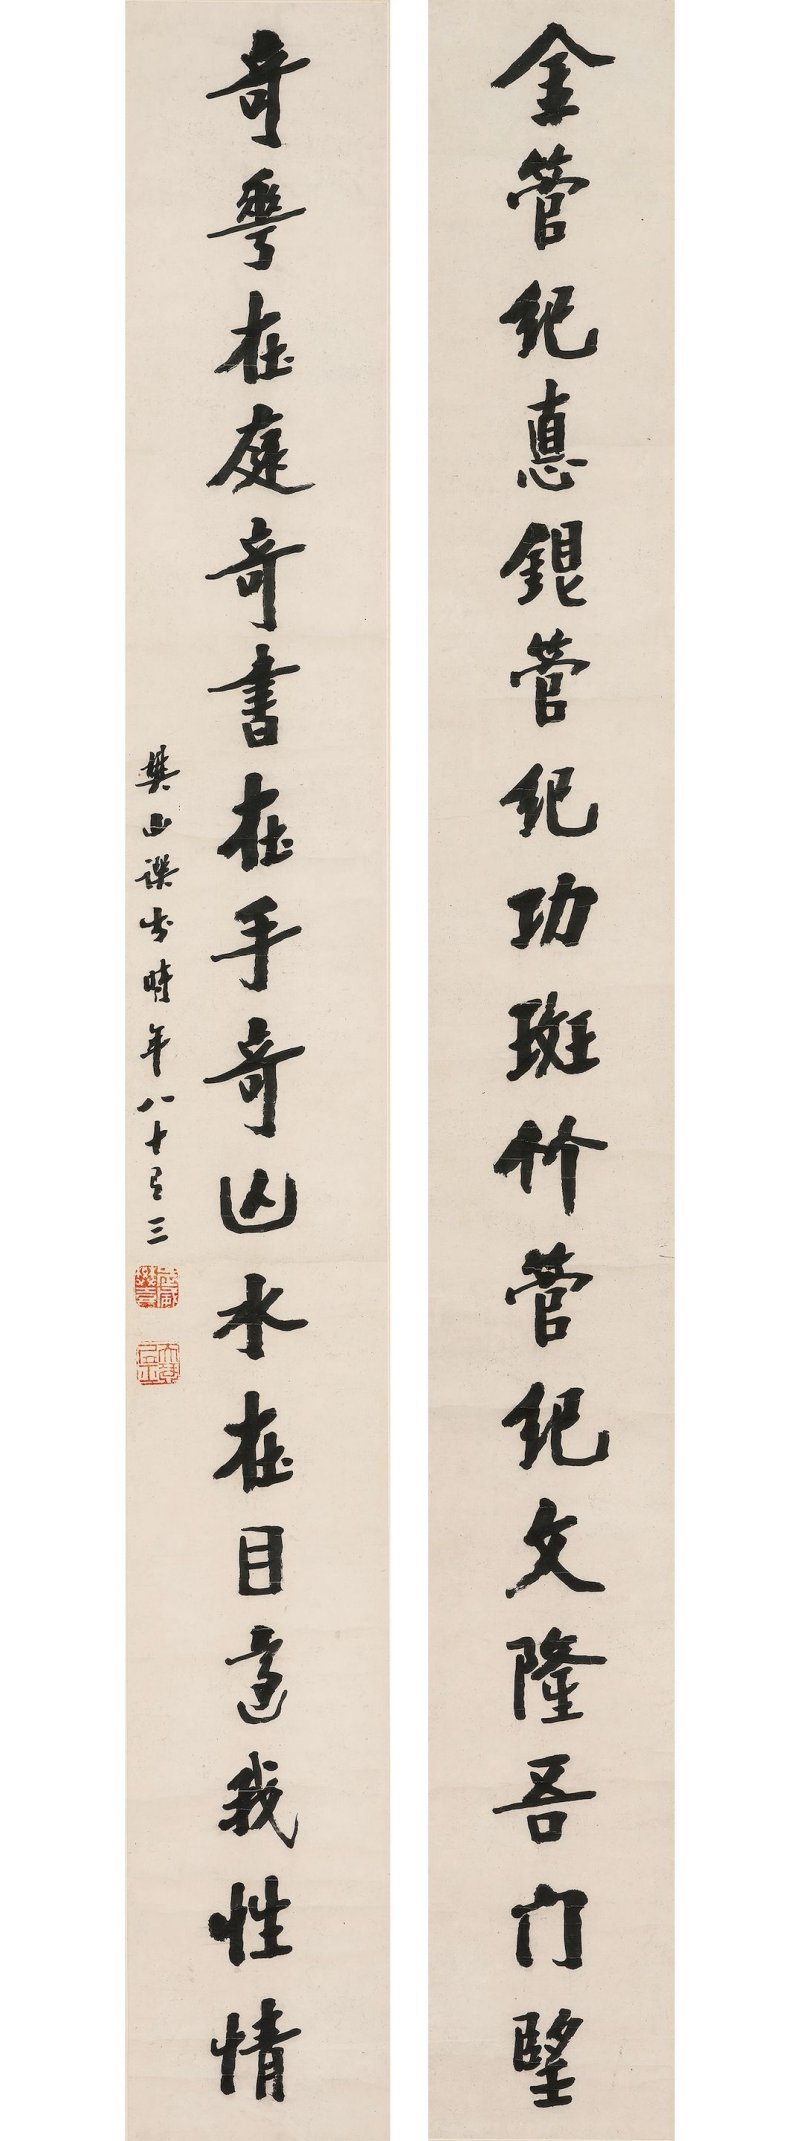 金管紀悳銀管紀功斑竹管紀文隆吾门朢
奇華在庭奇書在手奇山水在目適我性情
樊山譔書時年八十有三